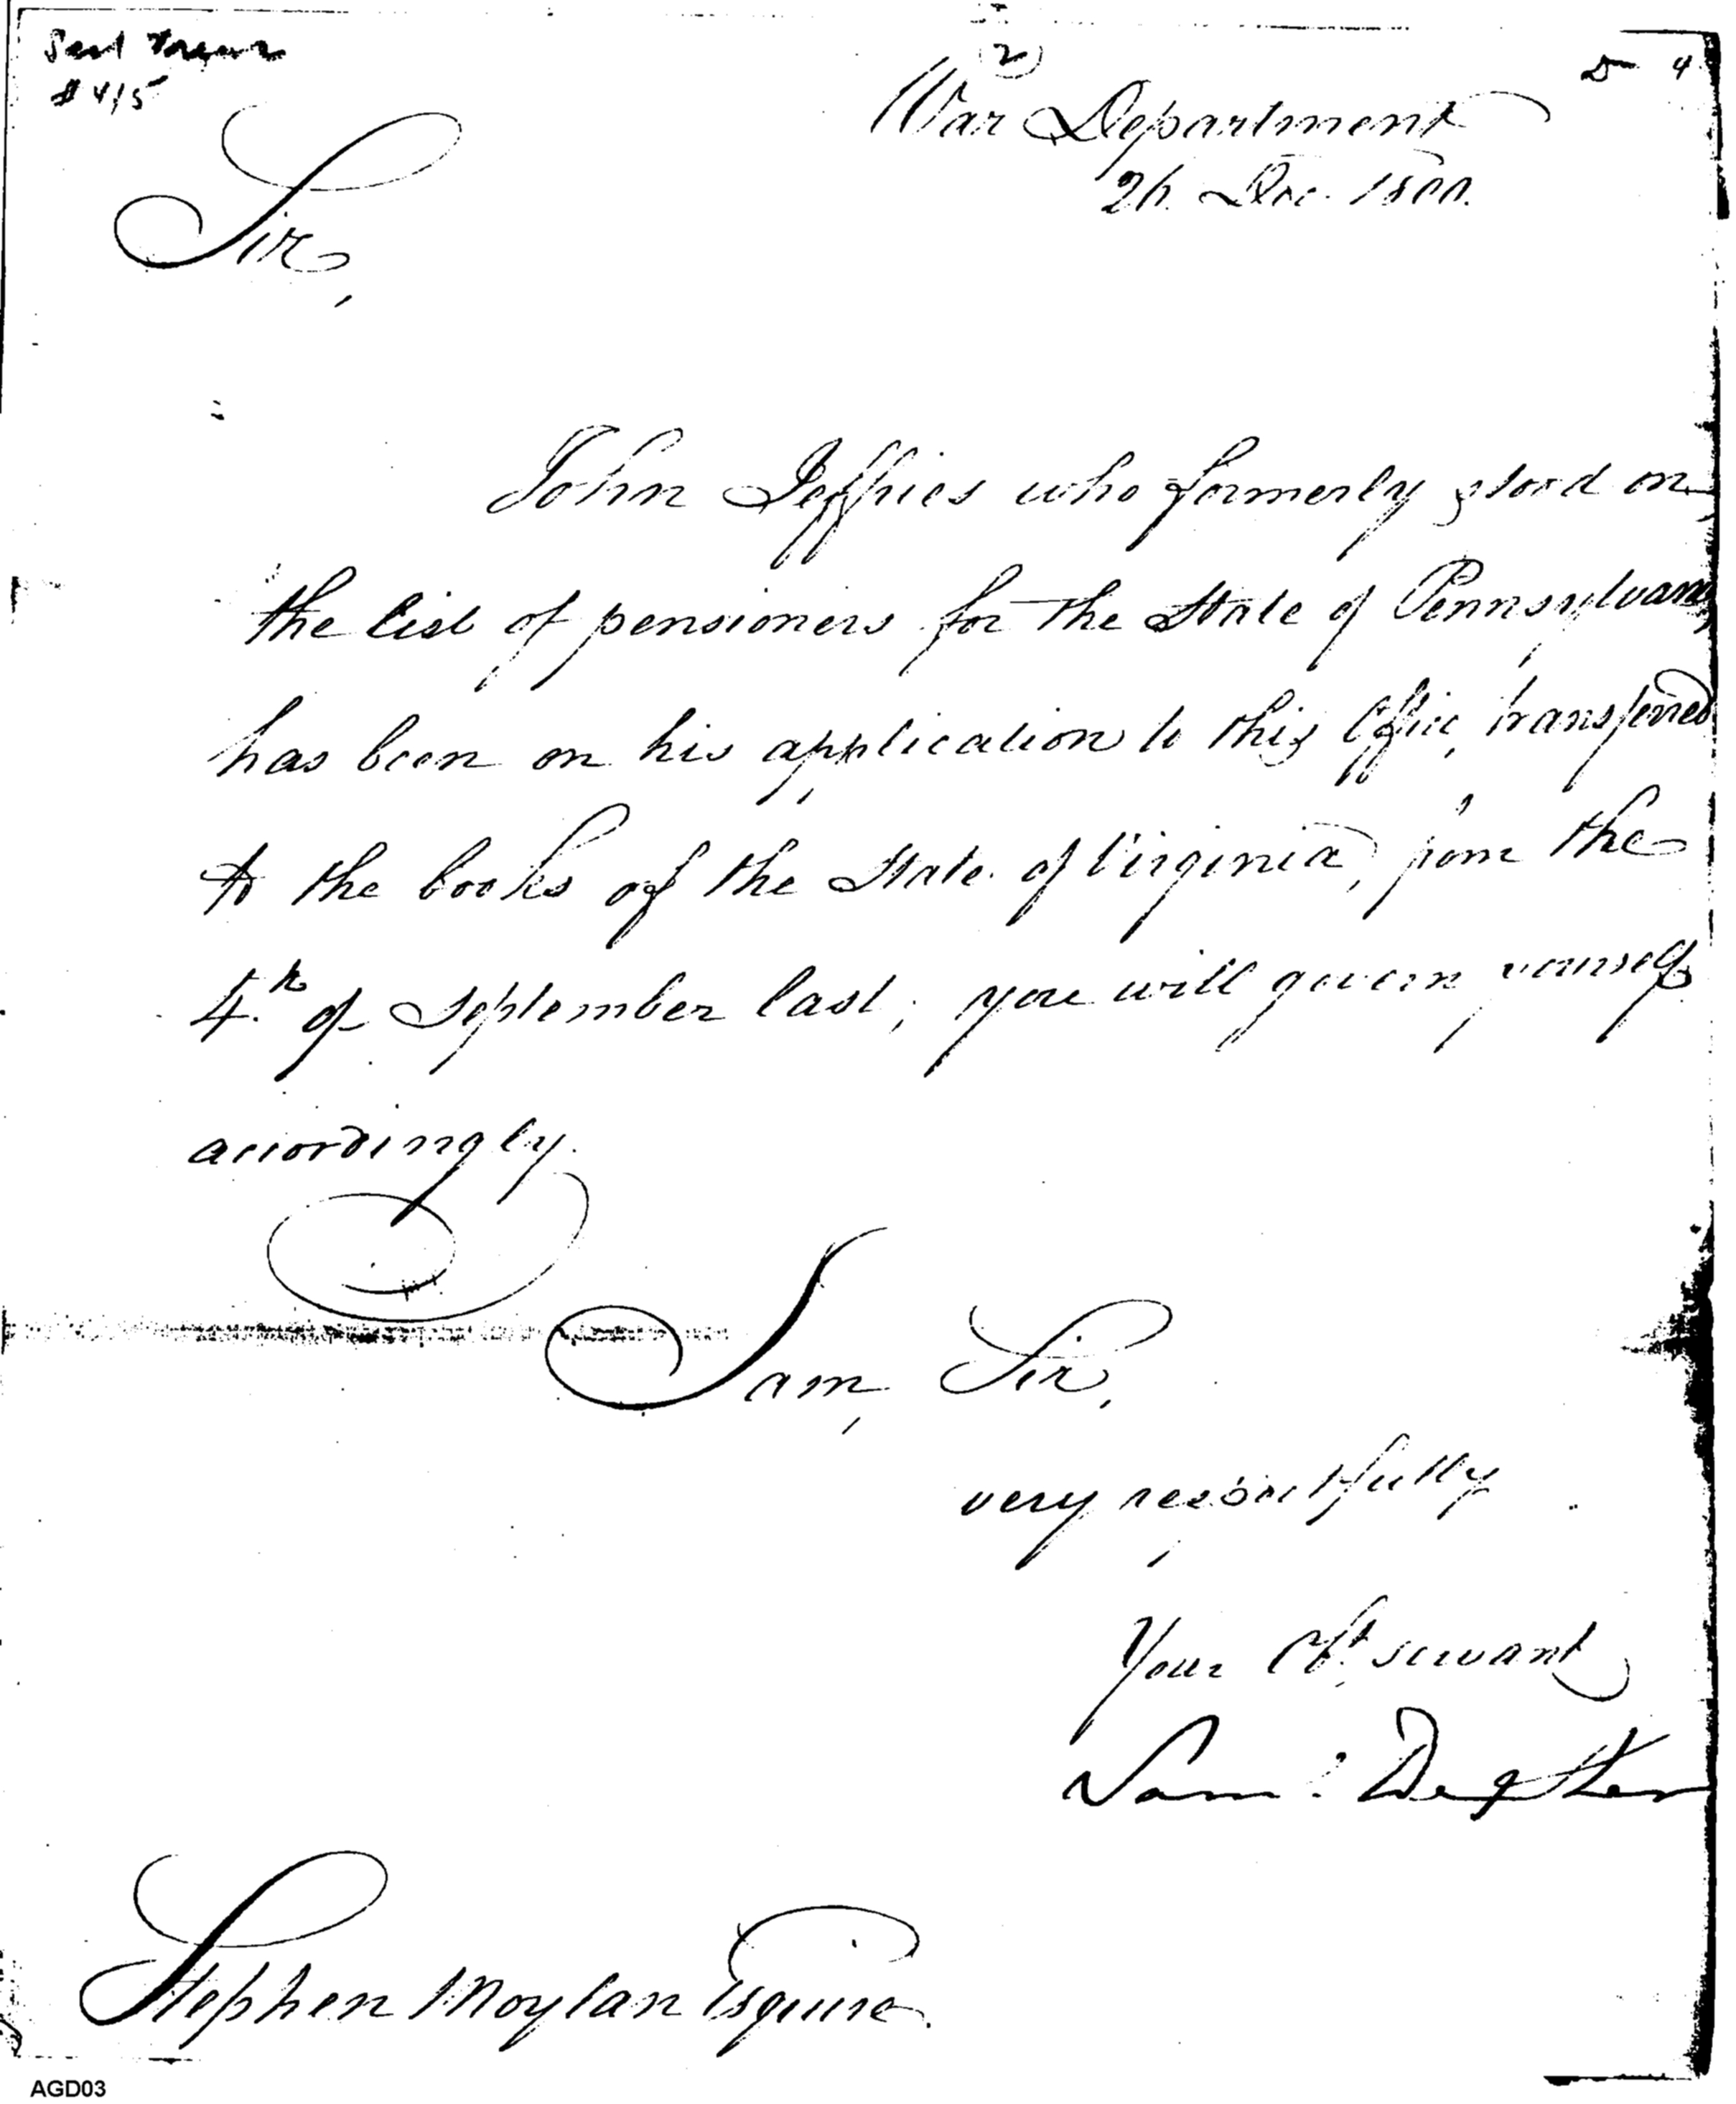 (2)
$ 415
War Department
26. Dec. 1800.
Sir,
John Jeffries who formerly stood on
the list of pensioners for the State of Pennsylvania
has been on his application to this Office, transferred
to the books of the State of Virginia, from the
4th of September last; you will govern yourself
accordingly.
I am, Sir,
very respectfully
Your Obt. servant
Saml. Dexter
Stephen Moylan Esquire.
AGD03